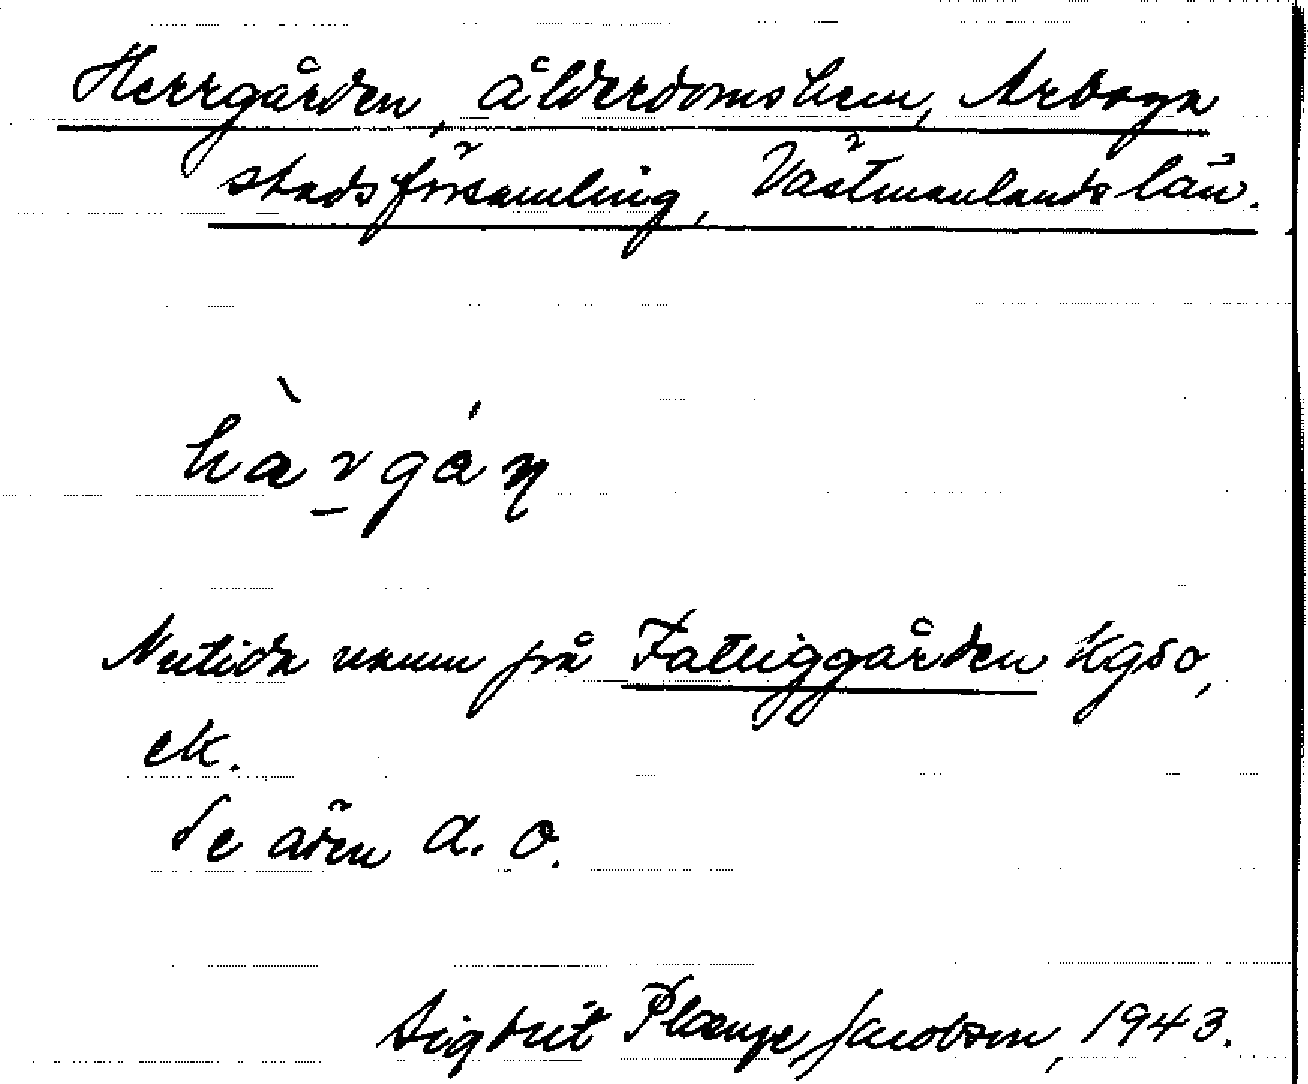 Herrgården, ålderdomshem, Arboga
stadsförsamling, Västmanlands län.
Nutida namn på Fattiggården Kgso,
ek.
Se även d. o.
Sigbrit Plænge Jacobson, 1943.